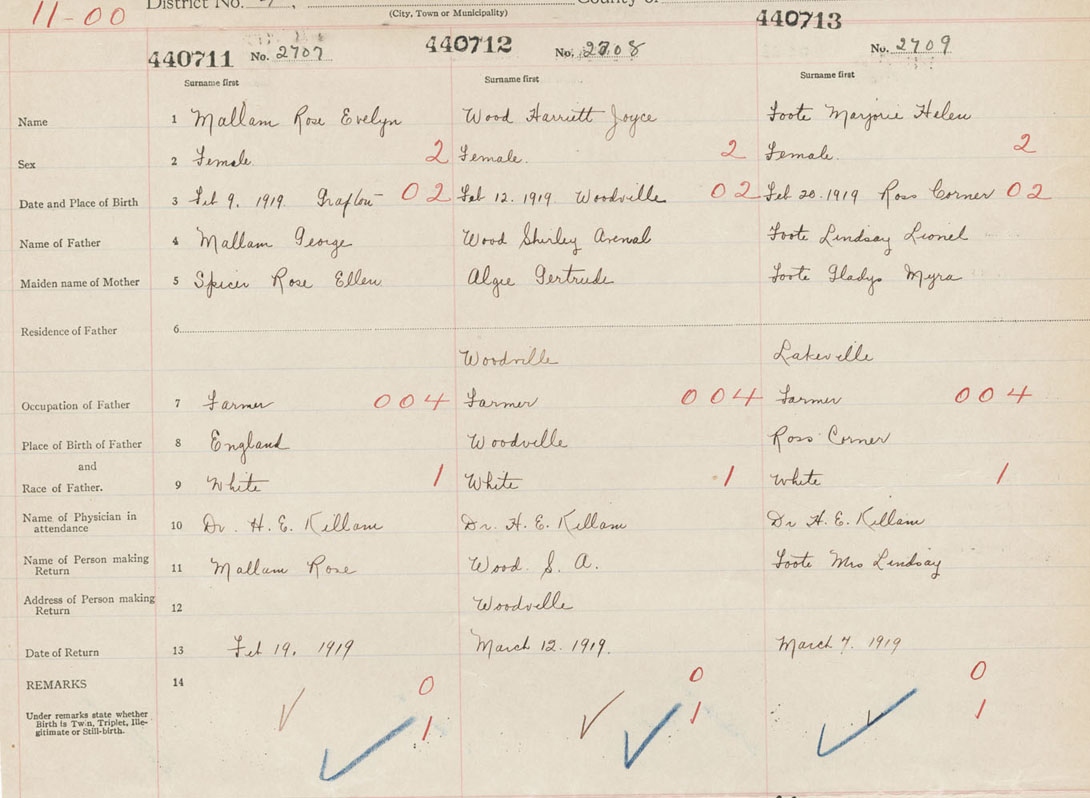 11-00 District No.
(City, Town or Municipality)
County of
440711 No. 2707 440712 No. 2708 440713 No. 2709
Surname first Surname first Surname first
Name 1 Mallam Rose Evelyn Wood Harriett Joyce Foote Marjorie Helen
Sex 2 Female. 2 Female. 2 Female. 2
Date and Place of Birth 3 Feb 9. 1919. Grafton 02 Feb 12. 1919 Woodville 02 Feb 20. 1919 Ross Corner 02
Name of Father 4 Mallam George Wood Shirley Foote Lindsay Lionel
Maiden name of Mother 5 Spicer Rose Ellen Algee Gertrude Foote Gladys Myra
Residence of Father 6
Woodville Lakeville
Occupation of Father 7 Farmer 004 Farmer 004 Farmer 004
Place of Birth of Father 8 England Woodville Ross Corner
and
Race of Father. 9 White 1 White 1 White 1
Name of Physician in
attendance 10 Dr. H. E. Killam Dr. H. E. Killam Dr H. E. Killam
Name of Person making
Return 11 Mallam Rose Wood. S. A. Foote Mrs Lindsay
Address of Person making
Return 12 Woodville
Date of Return 13 Feb 19, 1919 March 12. 1919. March 7. 1919
REMARKS 14 0 0 0
Under remarks state whether
Birth is Twin, Triplet, Ille-
gitimate or Still-birth. 1 1 1